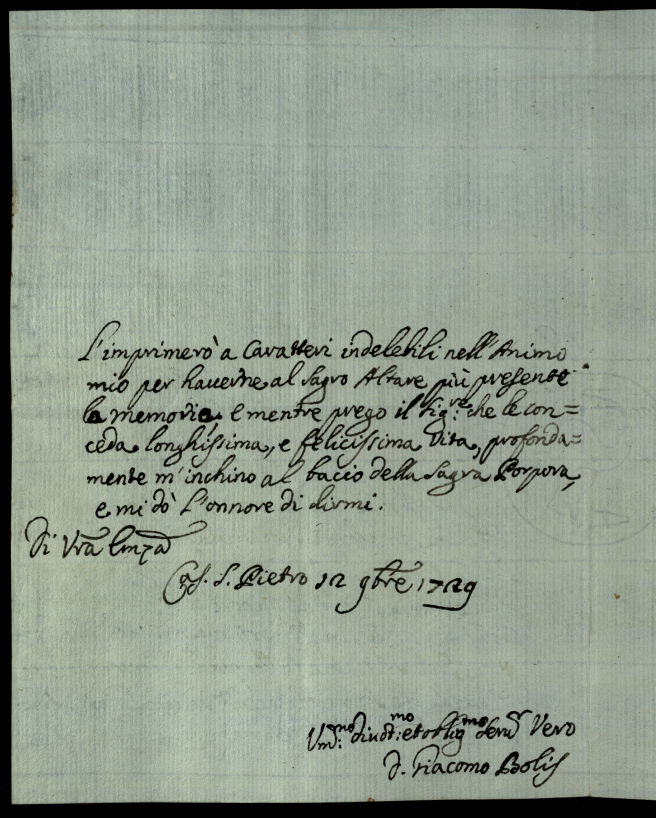 L'imprimerò a Caratteri indelebili nell'Animo
mio per hauerne al Sagro Altare più presente
la memoria, e mentre prego il Sig.re che le con=
ceda longhissima, e felicissima Vita, profonda=
mente m'inchino al baccio della Sagra Porpora,
e mi dò l'onnore di dirmi.
Di Vra Emza
Cas. S. Pietro 12 9bre 1729
Um:mo diuot:mo et obblig:mo Seru.r Vero
D. Giacomo Bolis